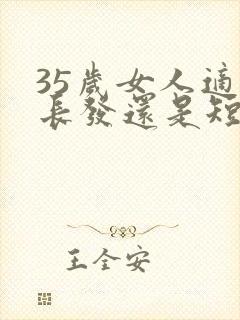 35歲女人適
長發還是短
王全安